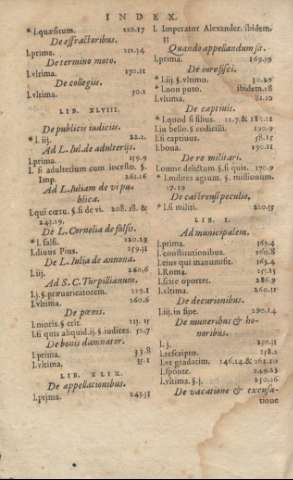 INDEX.
*l.quæsitum. 120.17
De effractoribus.
l.prima. 121.14
De termino moto.
l.vltima. 170.11
De collegiis.
l.vltima. 50.1
LIB. XLVIII.
De publicis iudiciis.
*l. iij. 22.2.
Ad L. Iul. de adulteriis.
l.prima. 159.9
l. si adulterium cum incesto. §.
Imp. 261.16
Ad L. Iuliam de vi pu-
blica.
l.qui cœtu. §.si de vi. 208.18. &
241.19.
De L. Cornelia de falso.
*l. falsi. 120.29
l.diuus Pius. 259.31
De L. Iulia de annona.
l.iij. 260.6
Ad S. C. Turpillianum.
l.j.§.præuaricatorem. 119.1
l.vltima. 260.6
De pœnis.
l.moris.§.erit. 113.15
l.si quis aliquid.ij.§.iudices. 57.7
De bonis damnator.
l.prima. 33.8
l.vltima. 35.1
LIB. XLIX.
De appellationibus.
l.prima. 245.31
l. Imperator Alexander. ibidem.
31
Quando appellandum sit.
l.prima. 169.19
l.iij. §.vltimo. 30.29
*l.non puto. ibidem.18
l.vltima.
De captiuis.
*l.quod si filius. 11.7. & 181.11
l.in bello. §.codicilli. 190.9
l.si captiuus. 58.15
l.bona. 190.11
De re militari.
l.omne delictum. §.si quis. 170.9
*l.milites agrum. §. missionum.
17.19
De castrensi peculio.
*l.si militi. 220.31
LIB. L.
Ad municipalem.
l.prima. 163.4
l.constitutionibus. 260.8
l.eius qui manumisit. 163.4
l.Roma. 251.15
l.scire oportet. 286.9
l.vltima. 260.11
De decurionibus.
l.iij.in fine. 290.14
De muneribus & ho-
noribus.
l.j. 250.31
l.rescripto. 258.2
l.vt gradatim. 146.14.& 261.20
l.sponte. 249.23
l.vltima.§.j. 250.16
De vacatione & excusa-
tione